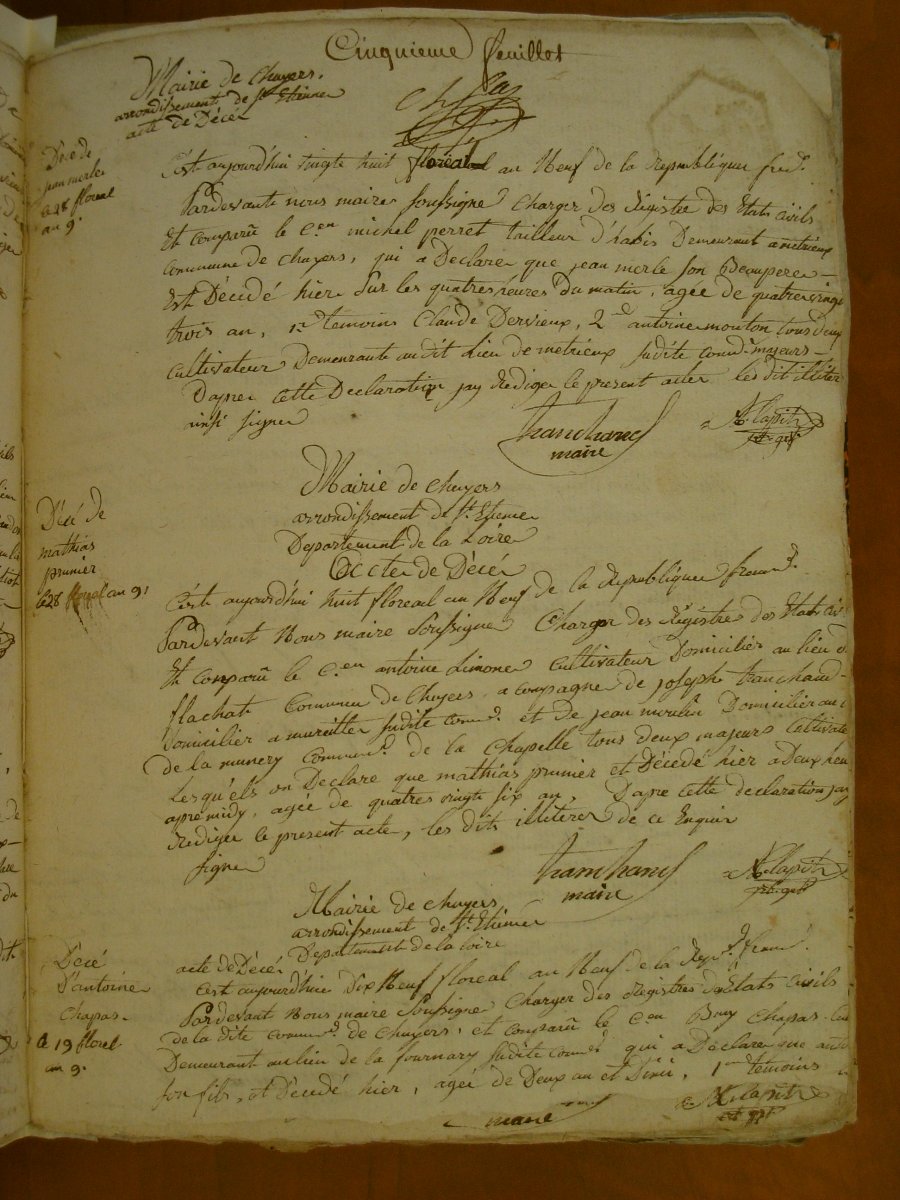 Cinquieme feuillet
Mairie de Chuyers.
arrondissement de St Etienne
acte de Décés
Décé de
jean merle
le 28 floreal
an 9
C'est aujourd'hui vingte huit floréal an Neuf de la Republique
Pardevante nous maire soussigne Charger des Registre des Etats civils
Et comparû le c.en michel perret tailleur d'habis Demeurant a metrieux
commune de chuyers, qui a Declare que jean merle son Beaupere
Est Décédé hier sur les quatres heures du matin, agée de quatre vingt
trois an, 1er temoins Claude Dervieux, 2d antoine mouton tous deux
cultivateur Demeurante audit Lieu de metrieux sudite comd. majeurs
Dapré cette Declaration jay Rediger le present acte les dit illiter
ainsi signe
tranchand
maire
Décé de
mathias
prunier
le 28 floreal an 9
Mairie de chuyers
arrondissement de St. Etienne
Departement de la Loire
Acte de Décés
C'est aujourd'hui huit floreal an Neuf de la Republique
Pardevant Nous maire Soussigne Charger des Registre des Etats civ
Et comparû le c.en antoine Limone cultivateur Domicilier au lieu d
flachat Commune de Chuyers, acompagne de joseph tranchand
Domicilier a sudite comd. et de jean moulin Domicilier au
de la munery commun. de la Chapelle tous deux majeurs Cultivate
Lesqu'els on Declare que mathias prunier et Décedé hier a Deux heu
apré midy, agée de quatres vingte six an, Dapré cette declaration jay
Rediger le present acte, les dits illiteres de ce Enquir
signe
tranchand
maire
Mairie de chuyers
arrondissement de St. Etienne
Departement de la Loire
acte de Décés
Décé
d'antoine
Chapas
le 19 floreal
an 9
C'est aujourd'hui Dix Neuf floreal an Neuf de la Rep.
Pardevant Nous maire Soussigne Charger des Registres d'Etats Civils
de la dite commd. de Chuyers, et comparû le c.en Chapas
Demeurant au lieu de la fournary sudite comd. qui a Declare que anto
son fils, et Décedé hier, ageé de Deux an et Demi, 1er temoins
maire